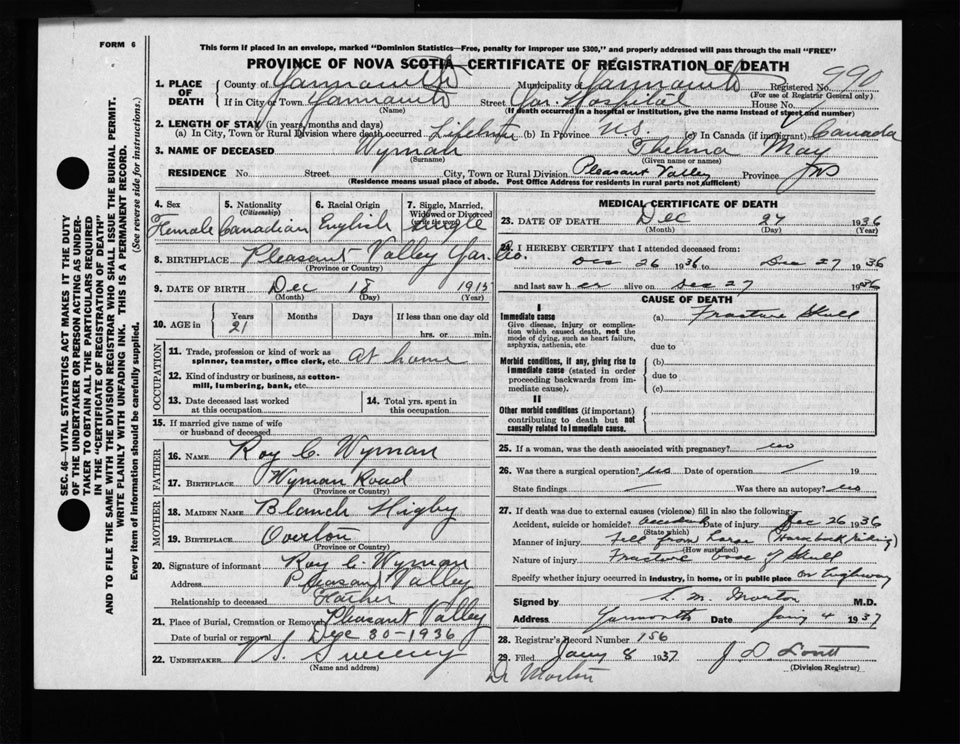 FORM 6
This form if placed in an envelope, marked "Dominion Statistics—Free, penalty for improper use $300," and properly addressed will pass through the mail "FREE"
PROVINCE OF NOVA SCOTIA—CERTIFICATE OF REGISTRATION OF DEATH
1. PLACE OF DEATH County of Yarmouth Municipality of Yarmouth Registered No. 990
(For use of Registrar General only)
If in City or Town Yarmouth Street Yar. Hospital House No.
(Name) (If death occurred in a hospital or institution, give the name instead of street and number)
2. LENGTH OF STAY (in years, months and days)
(a) In City, Town or Rural Division where death occurred Lifetime (b) In Province N.S. (c) In Canada (if immigrant) Canada
3. NAME OF DECEASED Wyman Thelma May
(Surname) (Given name or names)
RESIDENCE No. Street City, Town or Rural Division Pleasant Valley Province NS
(Residence means usual place of abode. Post Office Address for residents in rural parts not sufficient)
SEC. 46—VITAL STATISTICS ACT MAKES IT THE DUTY
OF THE UNDERTAKER OR PERSON ACTING AS UNDER-
TAKER TO OBTAIN ALL THE PARTICULARS REQUIRED
IN THE "CERTIFICATE OF REGISTRATION OF DEATH"
AND TO FILE THE SAME WITH THE DIVISION REGISTRAR WHO SHALL ISSUE THE BURIAL PERMIT.
WRITE PLAINLY WITH UNFADING INK. THIS IS A PERMANENT RECORD.
Every item of information should be carefully supplied. (See reverse side for instructions.)
4. Sex 5. Nationality (Citizenship) 6. Racial Origin 7. Single, Married, Widowed or Divorced (write the word)
Female Canadian English Single
8. BIRTHPLACE Pleasant Valley Yar. Co.
(Province or Country)
9. DATE OF BIRTH Dec 18 1915
(Month) (Day) (Year)
10. AGE in Years Months Days If less than one day old
21 hrs. or min.
OCCUPATION
11. Trade, profession or kind of work as spinner, teamster, office clerk, etc. At home
12. Kind of industry or business, as cotton-mill, lumbering, bank, etc.
13. Date deceased last worked at this occupation
14. Total yrs. spent in this occupation
15. If married give name of wife or husband of deceased
FATHER
16. NAME Roy C. Wyman
17. BIRTHPLACE Wyman Road
(Province or Country)
MOTHER
18. MAIDEN NAME Blanch Higby
19. BIRTHPLACE Overton
(Province or Country)
20. Signature of informant Roy C. Wyman
Address Pleasant Valley
Relationship to deceased Father
21. Place of Burial, Cremation or Removal Pleasant Valley
Date of burial or removal Dec 30-1936
22. UNDERTAKER V S. Sweeny
(Name and address)
MEDICAL CERTIFICATE OF DEATH
23. DATE OF DEATH Dec 27 1936
(Month) (Day) (Year)
24. I HEREBY CERTIFY that I attended deceased from:
Dec 26 1936 to Dec 27 1936
and last saw her alive on Dec 27 1936
CAUSE OF DEATH
I
Immediate cause (a) Fracture Skull
Give disease, injury or complication which caused death, not the mode of dying, such as heart failure, asphyxia, asthenia, etc. due to
Morbid conditions, if any, giving rise to immediate cause (stated in order proceeding backwards from immediate cause). (b)
due to
(c)
II
Other morbid conditions (if important) contributing to death but not causally related to immediate cause.
25. If a woman, was the death associated with pregnancy? no
26. Was there a surgical operation? no Date of operation — 19
State findings — Was there an autopsy? no
27. If death was due to external causes (violence) fill in also the following:
Accident, suicide or homicide? accident Date of injury Dec 26 1936
(State which)
Manner of injury Fell from horse (Horse back riding)
(How sustained)
Nature of injury Fracture base of skull
Specify whether injury occurred in industry, in home, or in public place on highway
Signed by S. M. Morton M.D.
Address Yarmouth Date Jany 4 1937
28. Registrar's Record Number 156
29. Filed Jany 8 1937
(Division Registrar)
Dr Morton